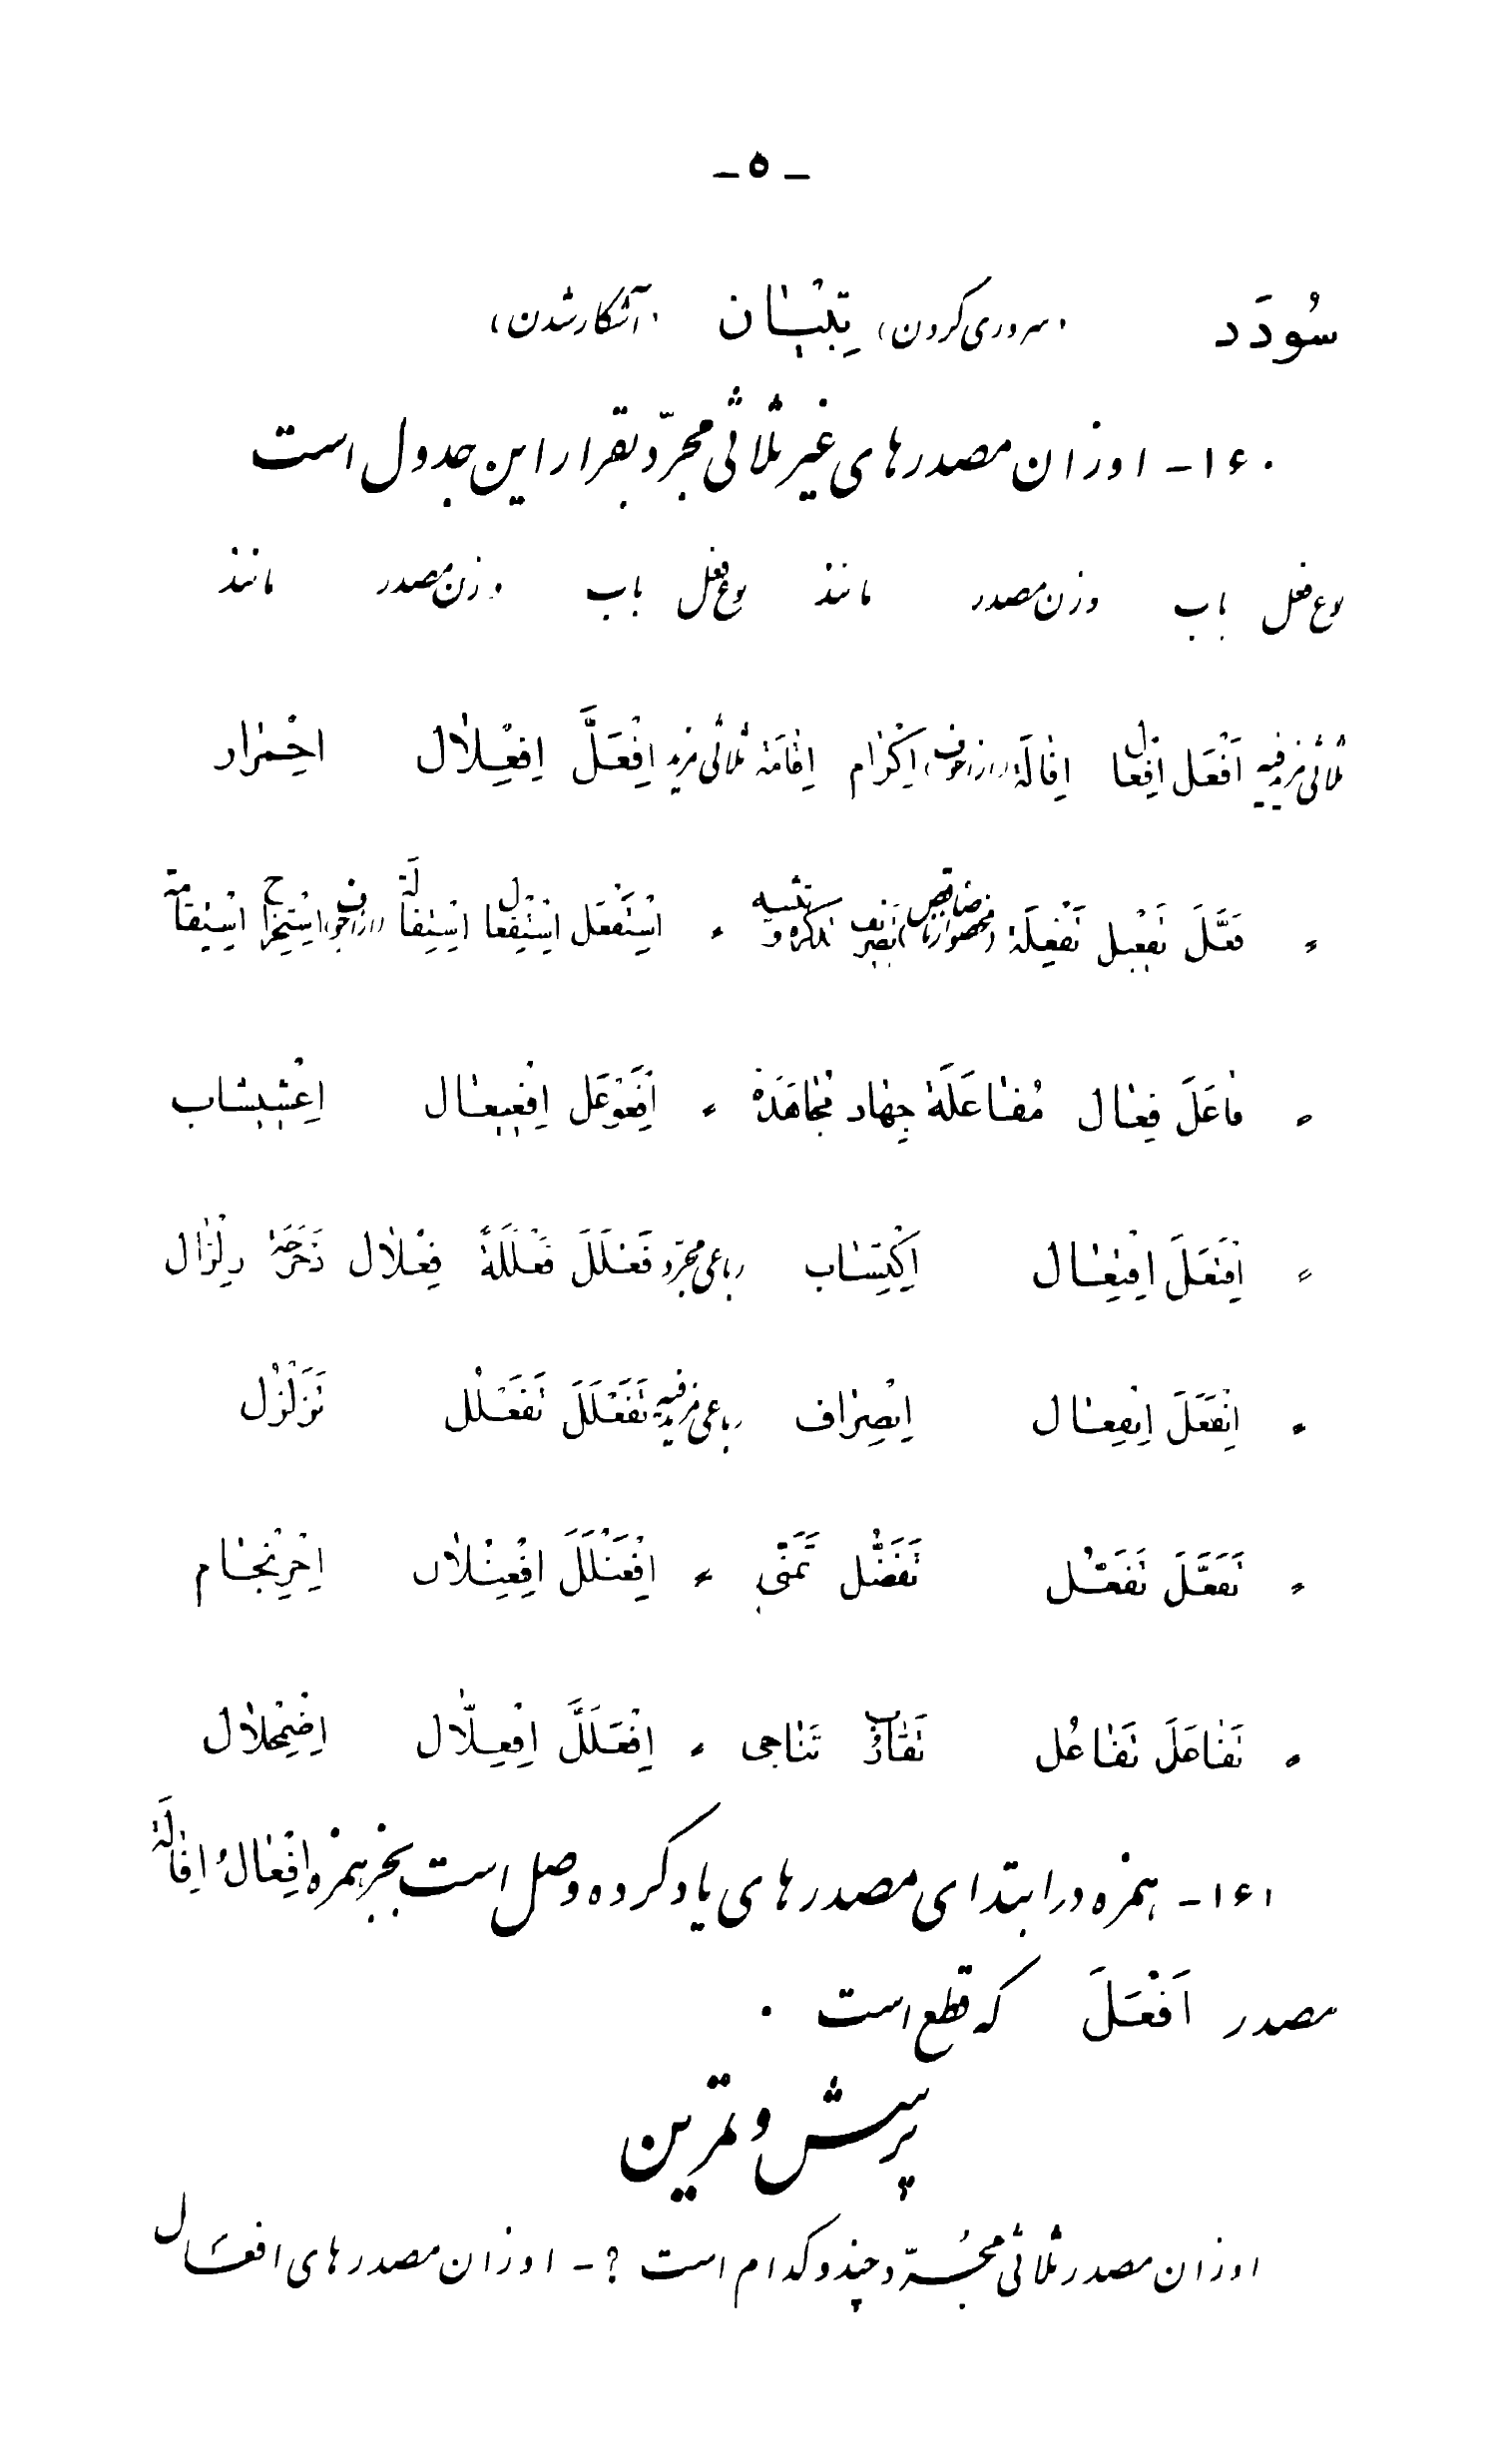 ـ ۵ ـ
سُودَد (سروری کردن) تِبْیٰان (آشکار شدن)
۱۶۰ ـ اوزان مصدرهای غیر ثلاثی مجرّد بقرار این جدول است
نوع فعل باب وزن مصدر مانند نوع فعل باب وزن مصدر مانند
ثلاثی مزیدفیه اَفْعَل اِفْعٰال اِفٰالَة (از اجوف) اِکْرٰام اِقٰامَة ثلاثی مزید اِفْعَلَّ اِفْعِلٰال احْمِرٰار
〃 فَعَّلَ تَفْعیل تَفْعِلَة تَصْریف 〃 اِسْتَفْعَل اِسْتِفْعٰال اِسْتِفٰالَة (از اجوف) اِسْتِخْرٰاج اِسْتِقٰامَة
〃 فٰاعَلَ فِعٰال مُفٰاعَلَة جِهٰاد مُجٰاهَدَة 〃 اِفْعَوْعَل اِفْعیعٰال اِعْشیشٰاب
〃 اِفْتَعَلَ اِفْتِعٰال اِکْتِسٰاب رباعی مجرّد فَعْلَلَ فَعْلَلَةً فِعْلٰال دَحْرَجَة زِلْزٰال
〃 اِنْفَعَلَ اِنْفِعٰال اِنْصِرٰاف رباعی مزیدفیه تَفَعْلَلَ تَفَعْلُل تَزَلْزُل
〃 تَفَعَّلَ تَفَعُّل تَفَضُّل تَمَنّی 〃 اِفْعَنْلَلَ اِفْعِنْلٰال اِحْرِنْجٰام
〃 تَفٰاعَلَ تَفٰاعُل تَقٰارُب تَنٰاجی 〃 اِفْعَلَلَّ اِفْعِلّٰال اِضْمِحْلٰال
۱۶۱ ـ همزه در ابتدای مصدرهای یاد کرده وصل است بجز همزه اِفْعٰال وُ اِفٰالَة
مصدر اَفْعَلَ که قطع است .
پرسش و تمرین
اوزان مصدر ثلاثی مجُرّد چند و کدام است ؟ ـ اوزان مصدرهای افعال